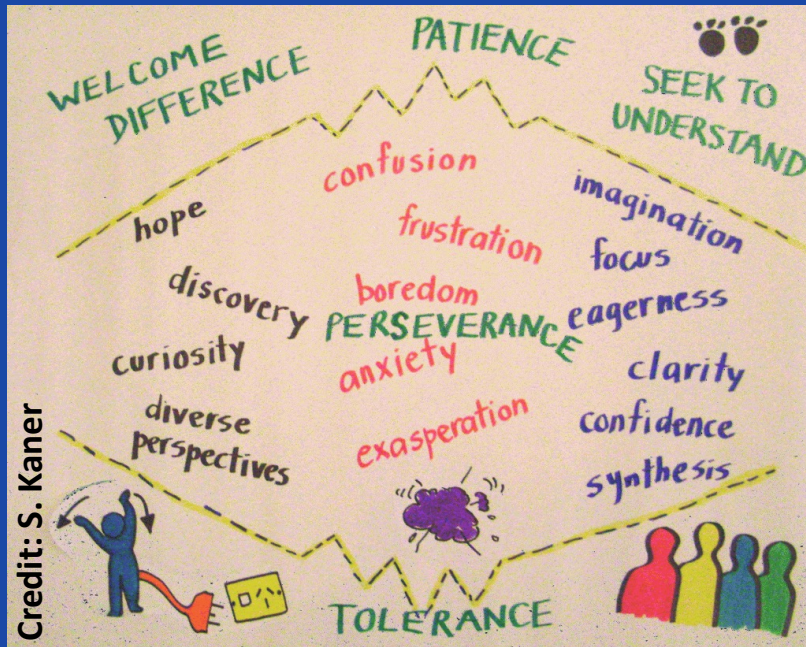 WELCOME
DIFFERENCE
PATIENCE
SEEK TO
UNDERSTAND
hope
discovery
curiosity
diverse
perspectives
confusion
frustration
boredom
PERSEVERANCE
anxiety
exasperation
imagination
focus
eagerness
clarity
confidence
synthesis
TOLERANCE
Credit: S. Kaner